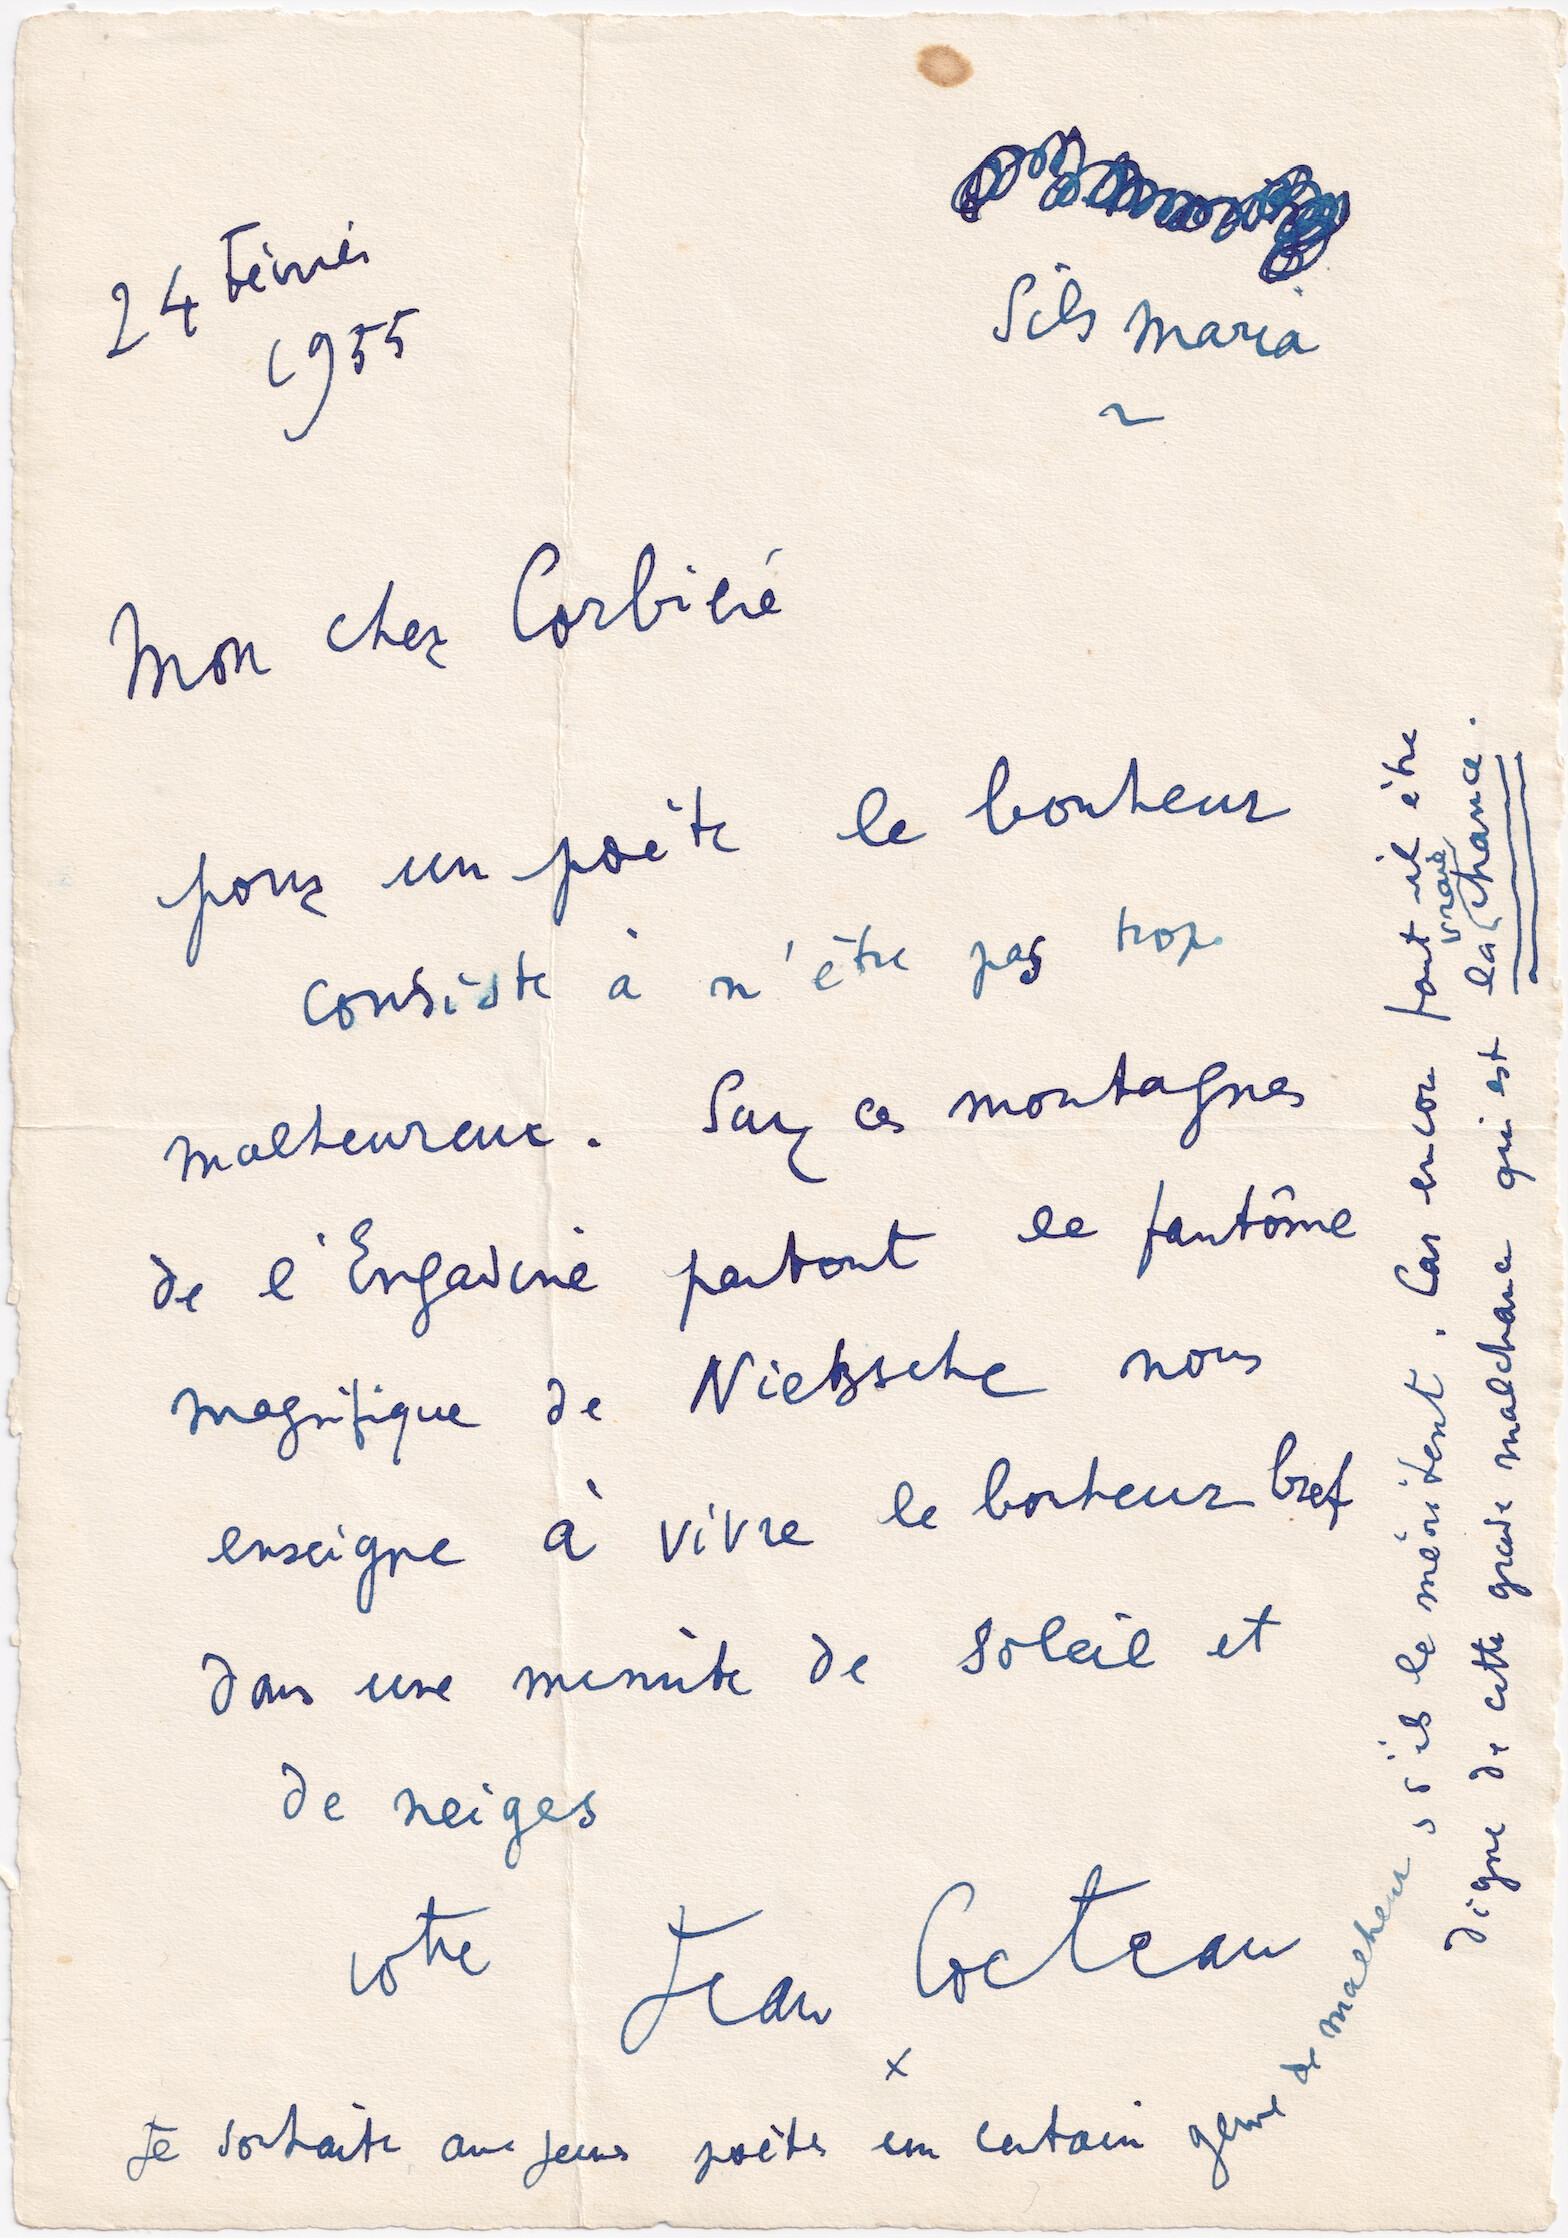 24 Février
1955
Sils Maria
~
Mon cher Corbière
pour un poète le bonheur
consiste à n'être pas trop
malheureux. Sur ces montagnes
de l'Engadine partout le fantôme
magnifique de Nietzsche nous
enseigne à vivre le bonheur bref
dans une minute de soleil et
de neiges
votre Jean Cocteau
x
Je souhaite aux jeunes poètes un certain genre de malheur s's'ils le méritent. Car encore faut-il être
digne de cette grande malchance qui est la vraie chance.